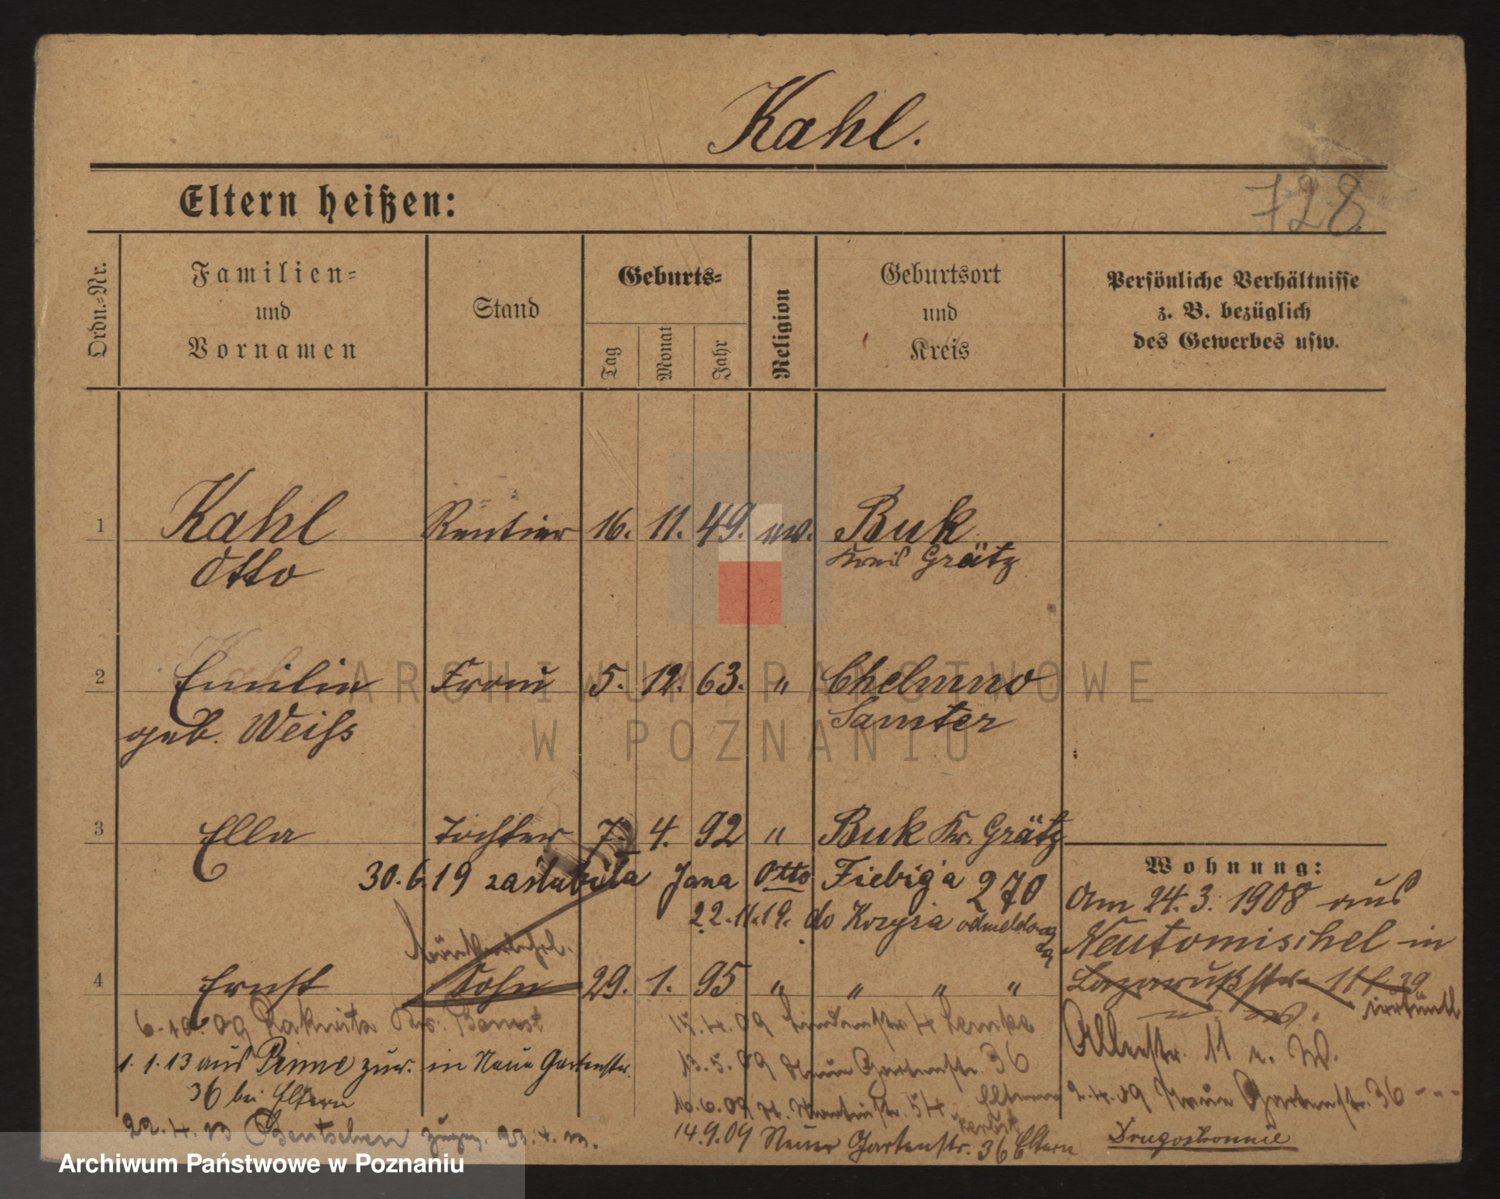 Kahl.
728
Eltern heißen:
Ordn.=Nr.
Familien=
und
Vornamen
Stand
Geburts=
Tag
Monat
Jahr
Religion
Geburtsort
und
Kreis
Persönliche Verhältnisse
z. B. bezüglich
des Gewerbes usw.
1 Kahl Rentier 16. 11. 49. ev. Buk
Otto Kreis Grätz
2 Emilie Frau 5. 12. 63. " Chelmno
geb. Weiſs Samter
3 Ella Tochter 7. 4. 92 " Buk Kr. Grätz
Wohnung:
30.6.19 zaślubiła Jana Otto Fiebiga 270
22.11.19. do Kozyra
Am 24. 3. 1908 aus
Neutomischel in
4 Ernst Sohn 29. 1. 95 " " " "
6.10.09
15.4.09 Lindenstr. 4
Allerstr. 11 u. W.
1.1.13 aus Pinne zur. in Neue Gartenstr.
36 bei Eltern
13.5.09 Neue Gartenstr. 36
2.4.09 Neue Gartenstr. 36
Eltern
22.4.13 Bentschen 23.4.13.
14.9.09 Neue Gartenstr. 36 Eltern
Drugostronnie
ARCHIWUM PAŃSTWOWE
W POZNANIU
Archiwum Państwowe w Poznaniu